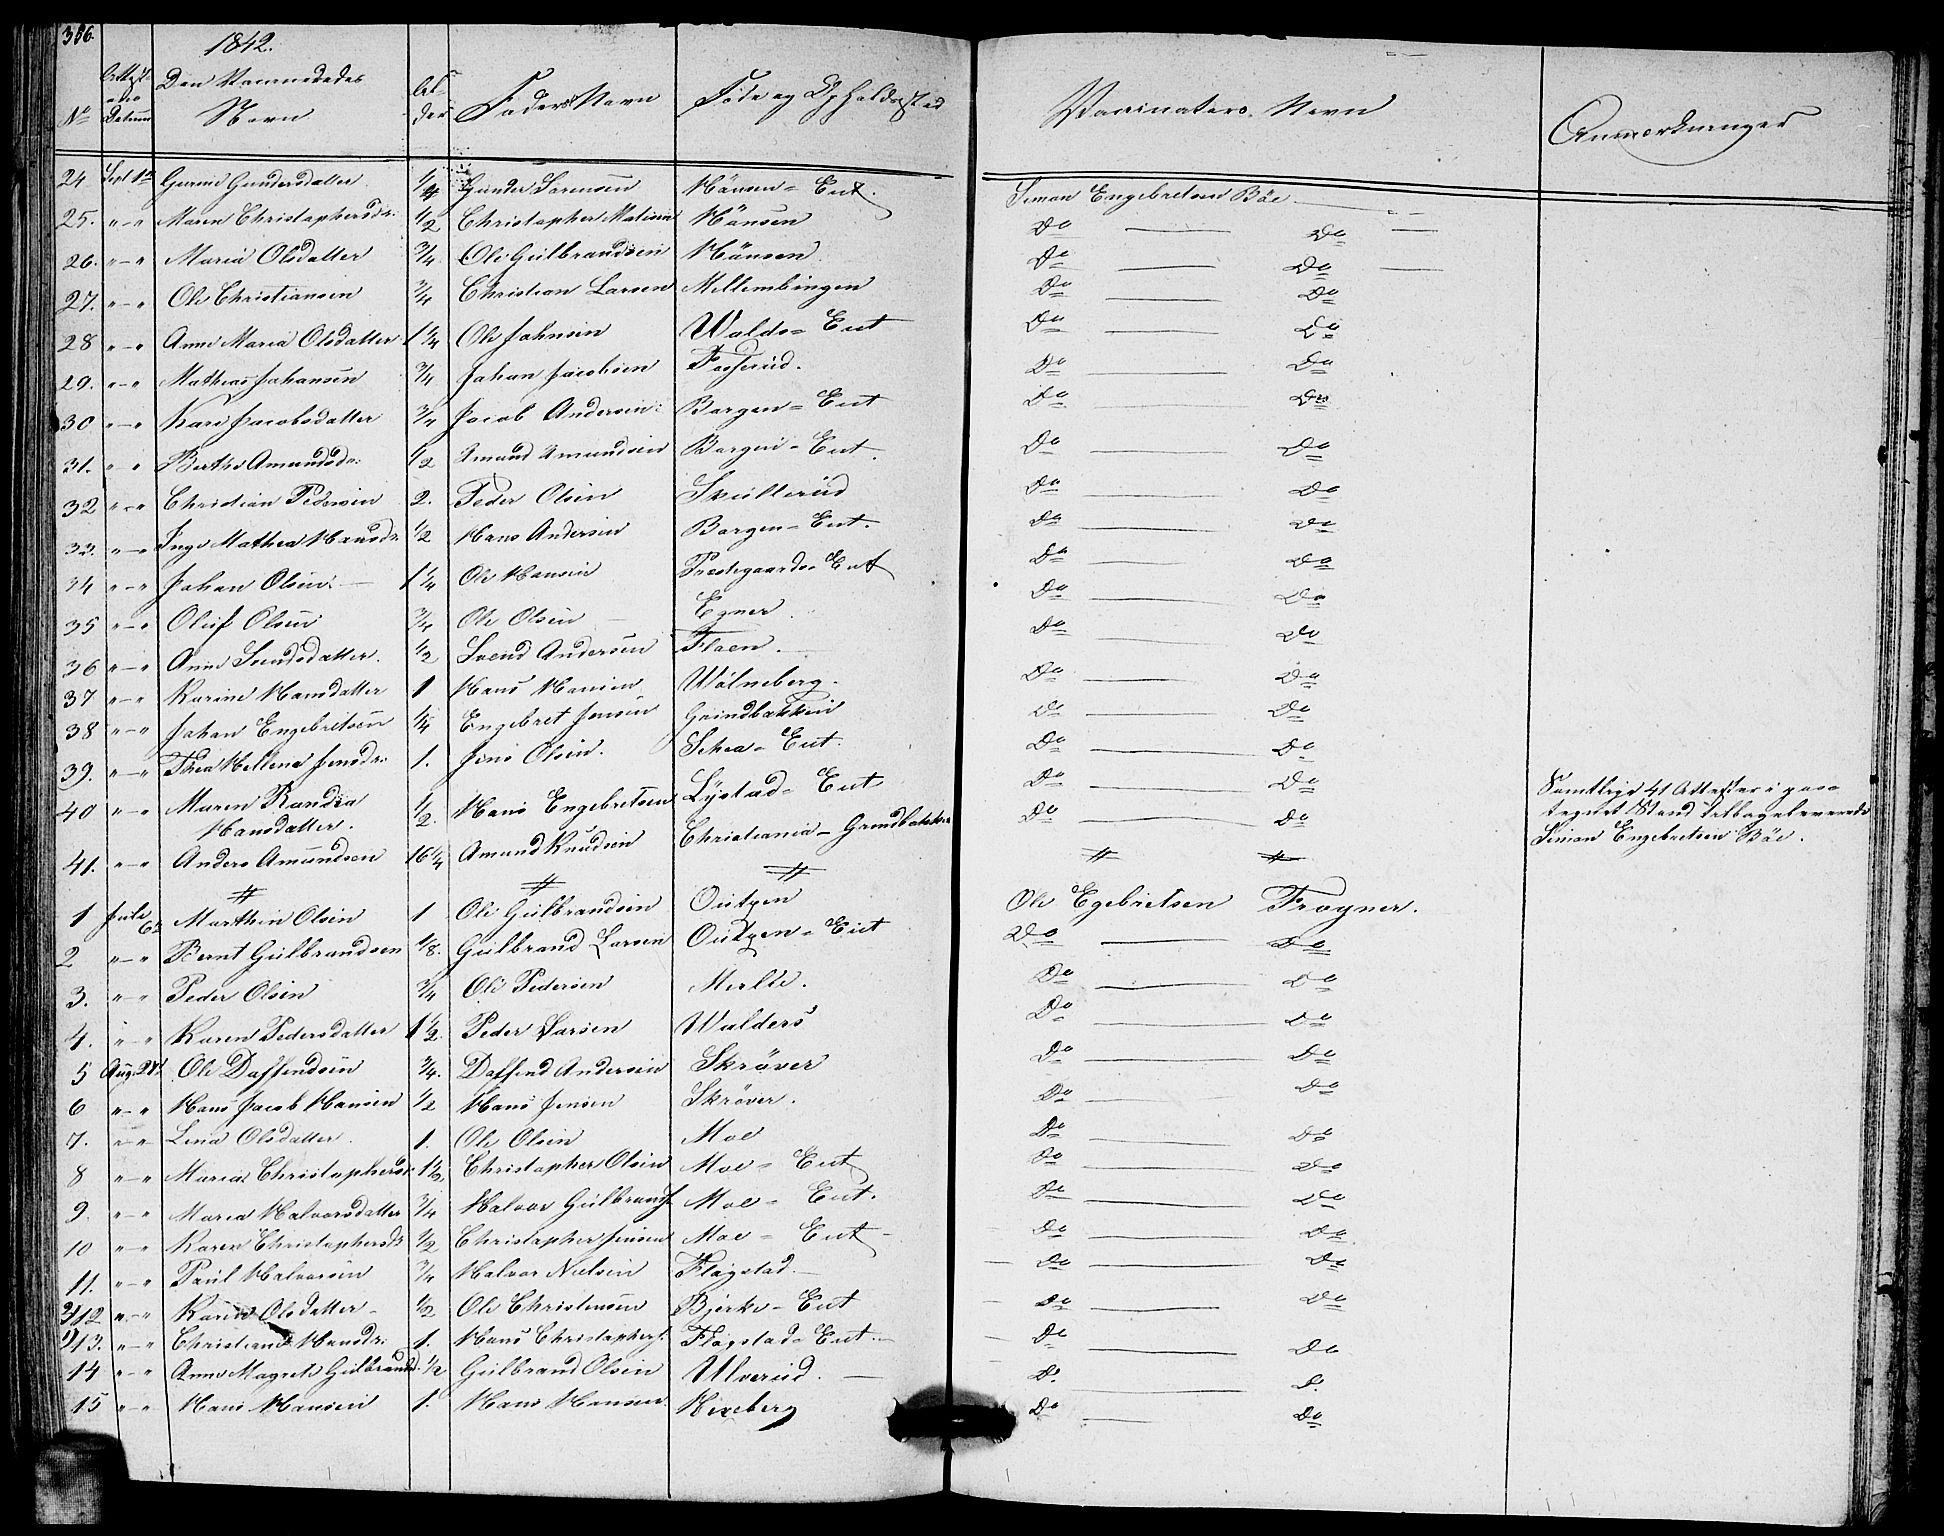 386.
1842.
No Attestens Datum Den Vaccineredes Navn Alder Faders Navn Føde og Opholdssted Vaccinateurs Navn Anmærkninger
24 Sept 12 Gurine Gundersdatter 1/4 Gunder Sørensen Hånsen-Eiet. Simon Engebretsen Bøe
25. "-" Maren Christophersdr: 1/2 Christopher Hånsen Do Do
26. "-" Maria Olsdatter 3/4. Ole Gulbrandsen Hånsen Do Do
27. "-" Ole Christiansen 3/4 Christian Larsen Mellembingen Do Do
28 "-" Anne Maria Olsdatter 1 1/4 Ole Johnsen Walds-Eiet Do Do
29. "-" Mathias Johansen 3/4 Johan Jacobsen Fosserud. Do Do
30 "-" Kari Jacobsdatter 3/4 Jacob Andersen Borgen-Eiet Do Do
31. " " Berthe Amundsdr: 1/2 Amund Amundsen Borgen-Eiet. Do Do
32 "-" Christian Pedersen 2. Peder Olsen Skullerud Do Do
33. "-" Inge Mathea Hansdr. 1/2 Hans Andersen Borgen-Eiet. Do Do
34 "-" Johan Olsen. 1 1/4 Ole Hansen Prestegaards-Eiet Do Do
35 "-" Oluf Olsen 3/4 Ole Olsen Egner Do Do
36 "-" Anne Svendsdatter. 1/2 Svend Andersen Floen. Do Do
37 "-" Karine Hansdatter 1 Hans Hansen Wølneberg. Do Do
38 "-" Johan Engebretsen 1/4 Engebret Jensen Grindbakken Do Do
39. "-" Thea Hellene Jensdr: 1. Jens Olsen. Schea-Eiet. Do Do
40 "-" Maren Randia Hansdatter. 1/2. Hans Engebretsen Lystad-Eiet Do Do
Samtlige 41 Attester i paa
tegnet Stand tilbageleverede
Simon Engebretsen Bøe.
41. "-" Anders Amundsen 16 1/4 Amund Knudsen Christiania-Grindbakken Do Do
1 Juli 6 Marthin Olsen 1 Ole Gulbrandsen Outgen Ole Egebretsen Frogner.
2 "-" Bernt Gulbrandsen 1/8. Gulbrand Larsen Outgen-Eiet Do Do
3. "-" Peder Olsen 3/4 Ole Pedersen Melle. Do Do
4. "-" Karen Pedersdatter 1 1/2. Peder Larsen Walders Do Do
5 Aug. 21 Ole Daffendsen 3/4. Daffend Andersen Skrøver Do Do
6 "-" Hans Jacob Hansen 1/2 Hans Jensen Skrøver. Do Do
7. "-" Lena Olsdatter. 1. Ole Olsen Moe Do Do
8 "-" Maria Christophersdr 1 1/2 Christopher Olsen Moe-Eiet Do Do
9. "-" Maria Halvorsdatter 3/4 Halvor Gulbrands. Moe-Eiet. Do Do
10 "-" Karen Christophersdr 1/2 Christopher Jensen Moe-Eiet Do Do
11. "-" Paul Halvorsen 3/4 Halvor Nielsen Flagstad. Do Do
12 "-" Karen Olsdatter 1/2 Ole Christensen Bjerke-Eiet Do Do
13. "-" Christiane Hansdr: 1. Hans Christophers. Flagstad-Eiet. Do Do
14 "-" Anne Magrete Gulbrandsd. 1/2 Gulbrand Olsen Ulverud. Do Do
15 "-" Hans Hansen 1. Hans Hansen Hexeberg Do Do